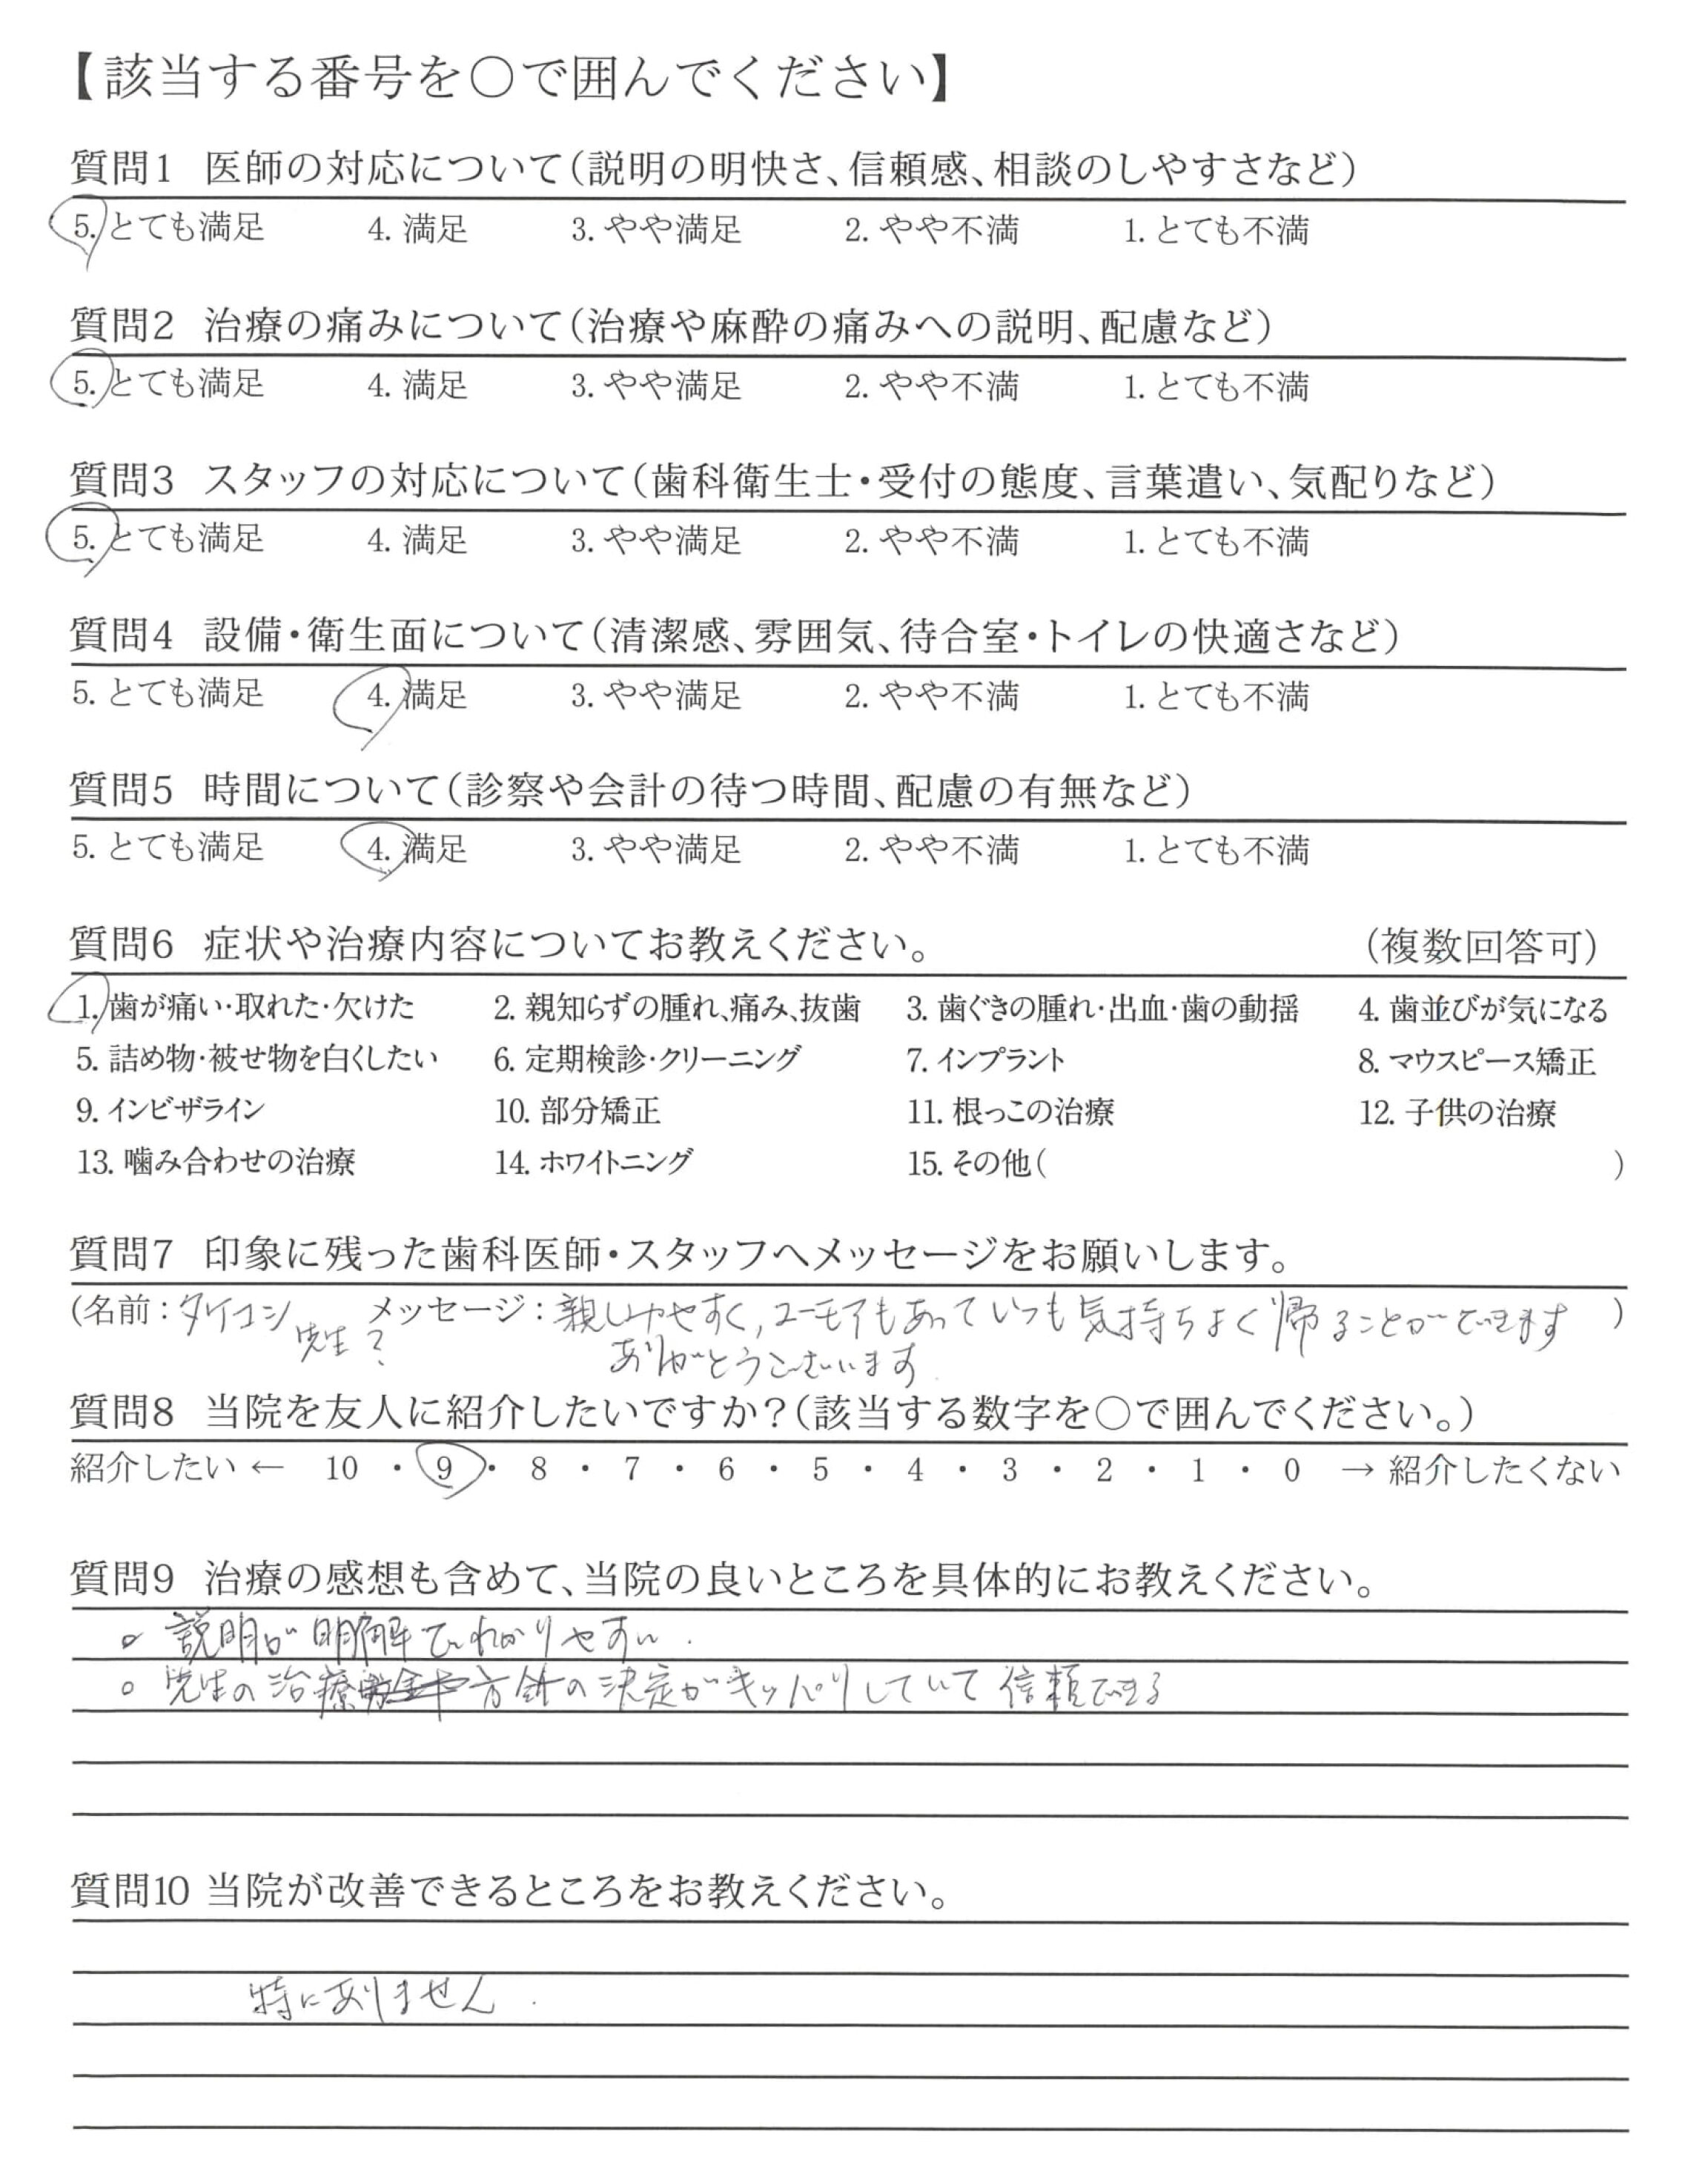 【該当する番号を〇で囲んでください】
質問1 医師の対応について（説明の明快さ、信頼感、相談のしやすさなど）
5. とても満足 4. 満足 3. やや満足 2. やや不満 1. とても不満
質問2 治療の痛みについて（治療や麻酔の痛みへの説明、配慮など）
5. とても満足 4. 満足 3. やや満足 2. やや不満 1. とても不満
質問3 スタッフの対応について（歯科衛生士・受付の態度、言葉遣い、気配りなど）
5. とても満足 4. 満足 3. やや満足 2. やや不満 1. とても不満
質問4 設備・衛生面について（清潔感、雰囲気、待合室・トイレの快適さなど）
5. とても満足 4. 満足 3. やや満足 2. やや不満 1. とても不満
質問5 時間について（診察や会計の待つ時間、配慮の有無など）
5. とても満足 4. 満足 3. やや満足 2. やや不満 1. とても不満
質問6 症状や治療内容についてお教えください。 （複数回答可）
1. 歯が痛い・取れた・欠けた 2. 親知らずの腫れ、痛み、抜歯 3. 歯ぐきの腫れ・出血・歯の動揺 4. 歯並びが気になる
5. 詰め物・被せ物を白くしたい 6. 定期検診・クリーニング 7. インプラント 8. マウスピース矯正
9. インビザライン 10. 部分矯正 11. 根っこの治療 12. 子供の治療
13. 噛み合わせの治療 14. ホワイトニング 15. その他（ ）
質問7 印象に残った歯科医師・スタッフへメッセージをお願いします。
（名前：タイコン メッセージ：親しみやすく,ユーモアもあっていつも気持ちよく帰ることができます ）
先生？ ありがとうございます.
質問8 当院を友人に紹介したいですか？（該当する数字を〇で囲んでください。）
紹介したい ← 10 ・ 9 ・ 8 ・ 7 ・ 6 ・ 5 ・ 4 ・ 3 ・ 2 ・ 1 ・ 0 → 紹介したくない
質問9 治療の感想も含めて、当院の良いところを具体的にお教えください。
○ 説明が明解でわかりやすい.
○ 先生の治療方針の決定がキッパリしていて信頼できる
質問10 当院が改善できるところをお教えください。
特にありません.